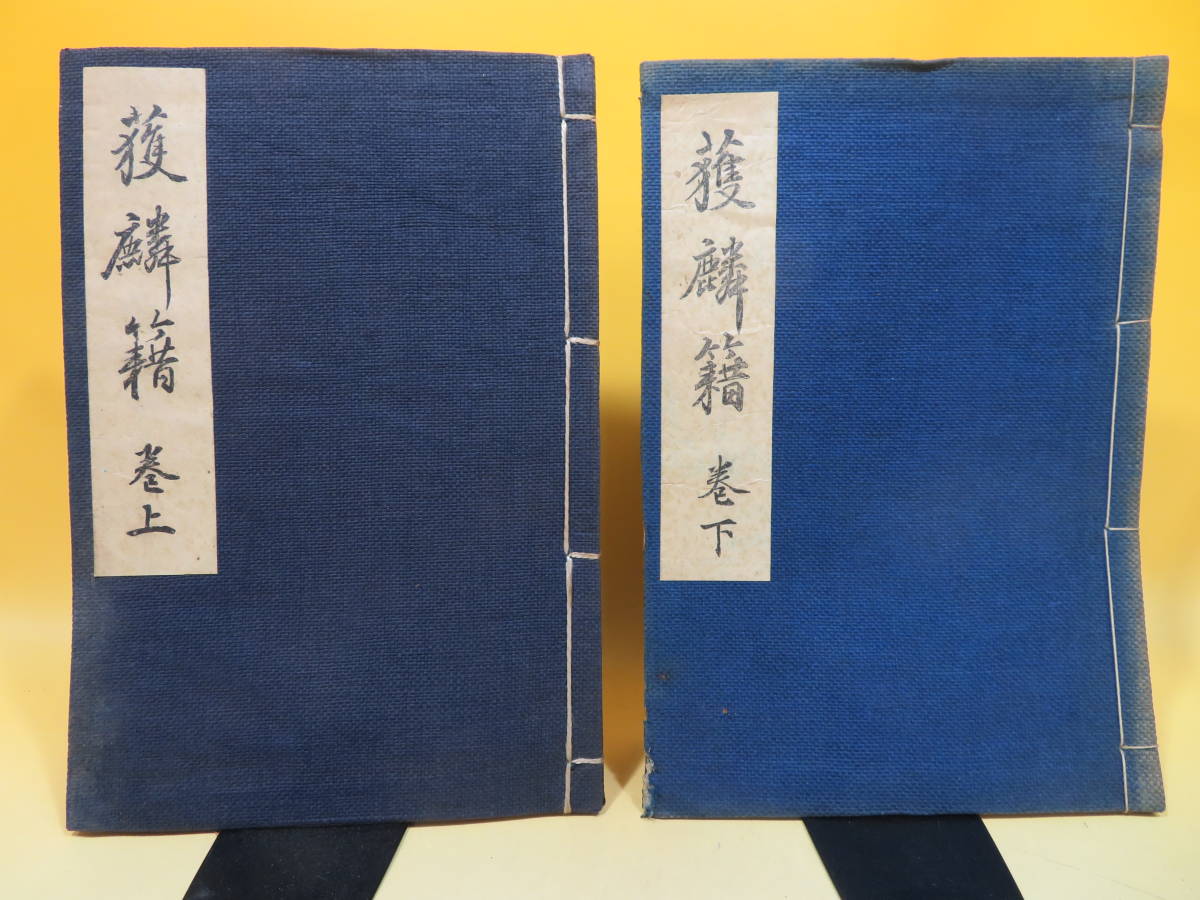 獲麟籍 巻上
獲麟籍 巻下